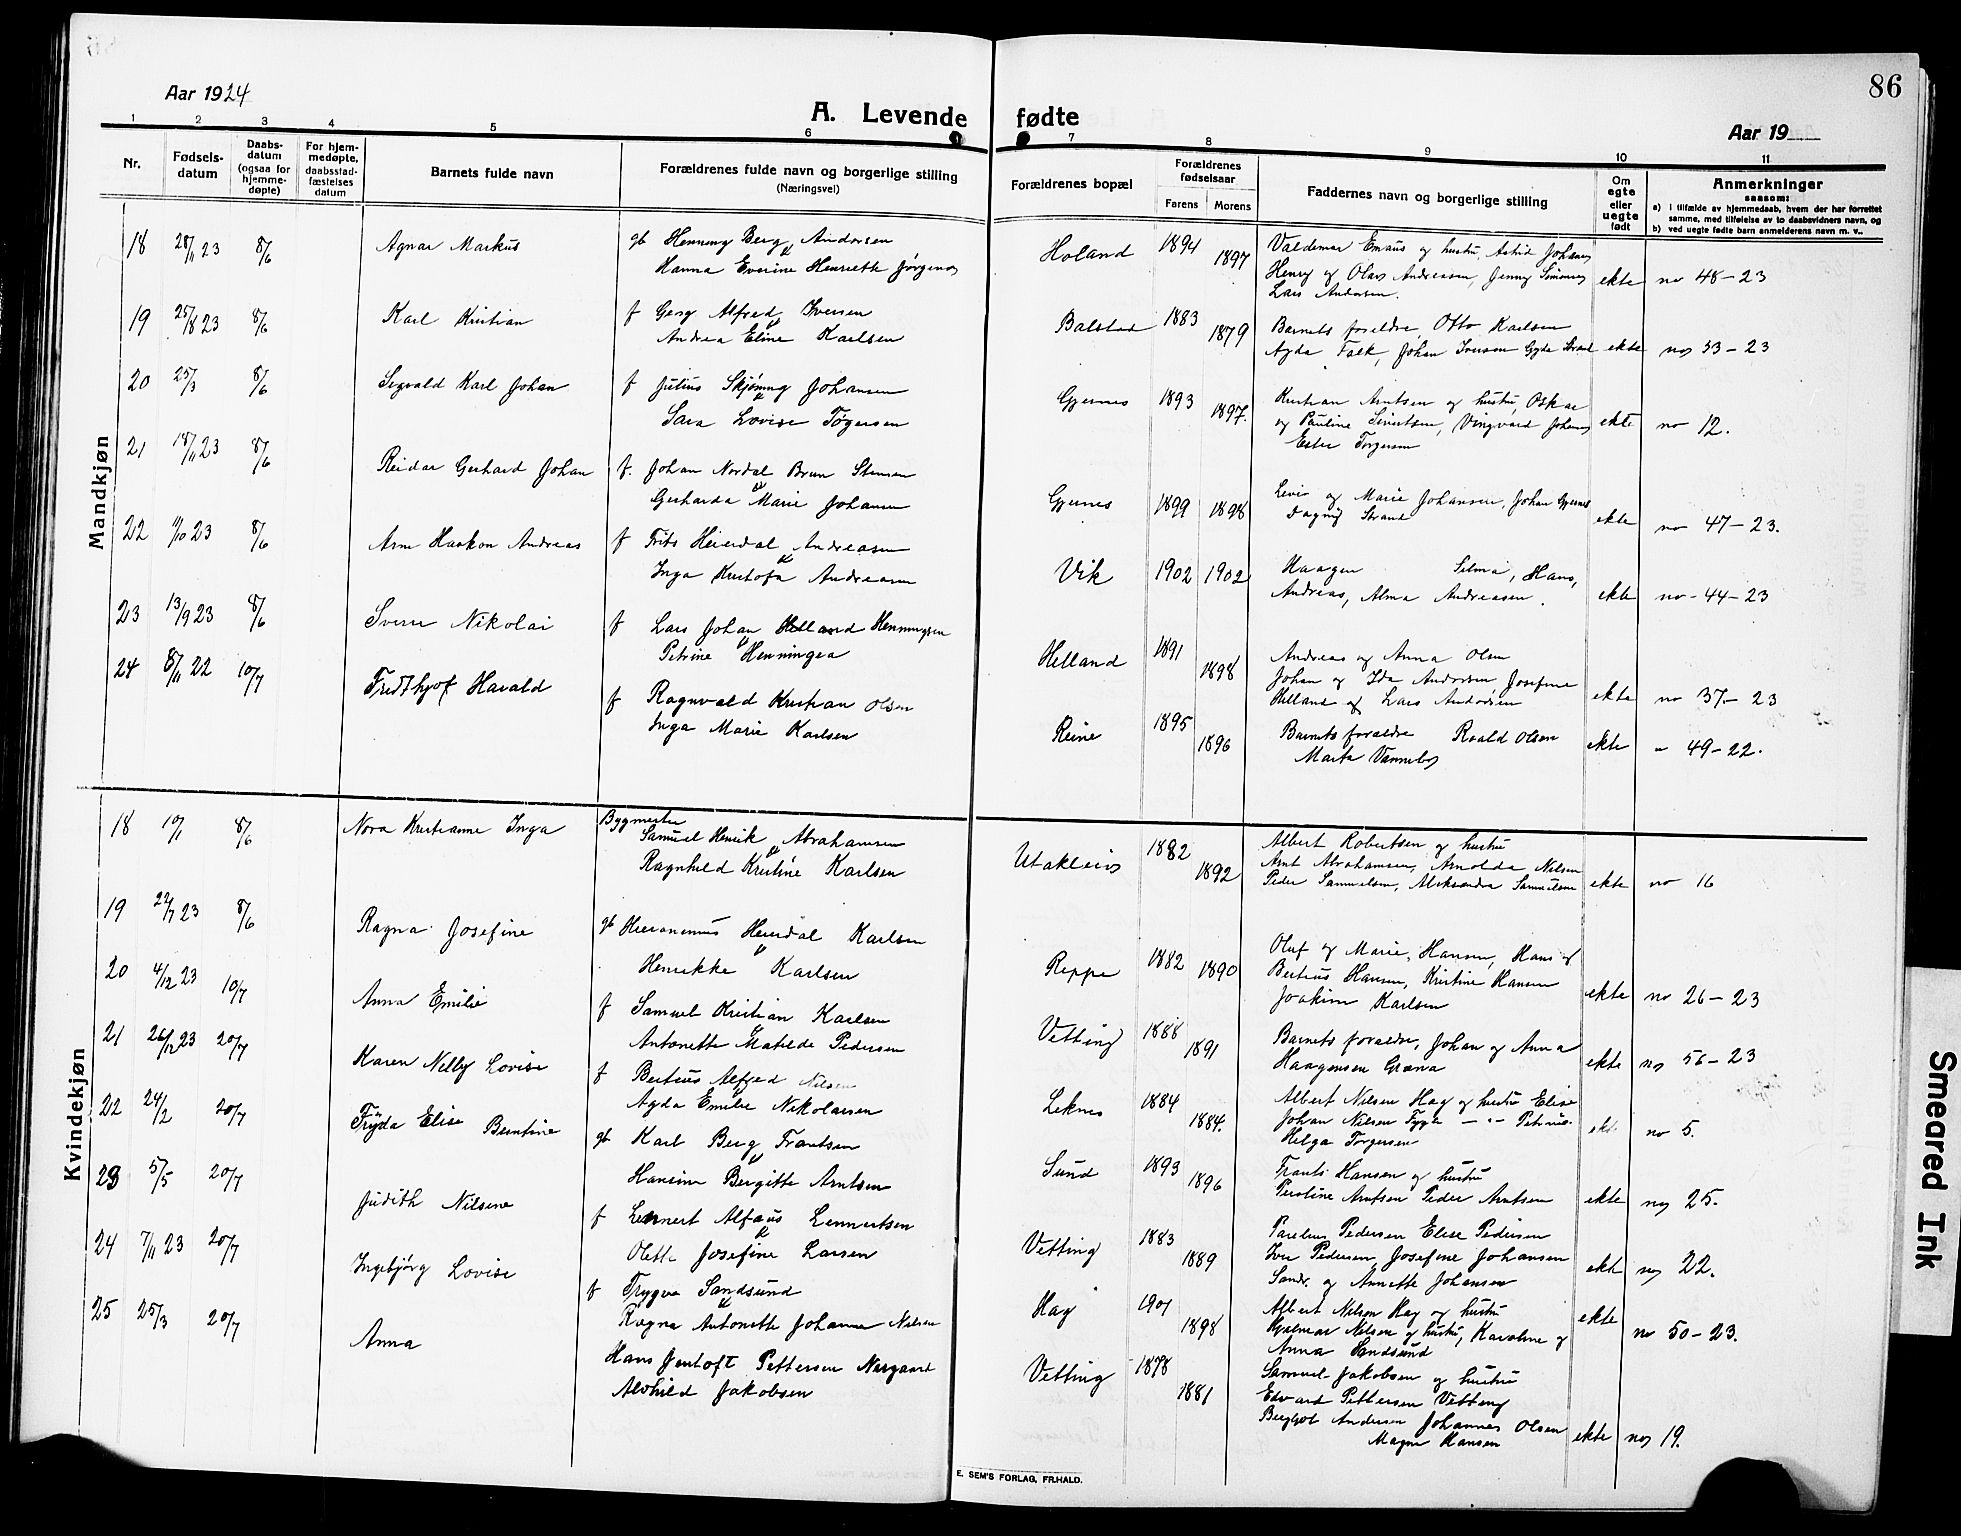 86
Aar 1924
A. Levende fødte
Aar 19
1 2 3 4 5 6 7 8 9 10 11
Nr.
Fødsels-
datum
Daabs-
datum
(ogsaa for
hjemme-
døpte)
For hjem-
medøpte,
daabsstad-
fæstelses
datum
Barnets fulde navn
Forældrenes fulde navn og borgerlige stilling
(Næringsvei)
Forældrenes bopæl
Forældrenes
fødselsaar
Farens Morens
Faddernes navn og borgerlige stilling
Om
egte
eller
uegte
født
Anmerkninger
saasom:
a) i tilfælde av hjemmedaab, hvem der har forrettet
samme, med tilføielse av to daabsvidners navn, og
b) ved uegte fødte barn anmelderens navn m. v..
Mandkjøn
18 28/11 23 8/6 Agnar Markus gb Henning Berg Andersen
Hanna Everine Henriette Jørgensen
Holand 1894 1897 Valdemar Emaus og hustru, Astrid Johansen
Henry og Olav Andreassen, Jenny Simonsen
Lars Andersen.
ekte no 48-23
19 25/8 23 8/6 Karl Kristian f Georg Alfred Iversen
Andrea Eline Karlsen
Balstad 1883 1879 Barnets foreldre Otto Karlsen
Agda Falk, Johan Iversen Gyda Strand
ekte no 33-23
20 25/3 8/6 Sigvald Karl Johan f Julius Skjønning Johansen
Sara Lovise Torgersen
Gjernes 1893 1897. Kristian Arntsen og hustru, Oskar
og Pauline Sivertsen, Vingvard Johansen
Ester Torgersen
ekte no 12.
21 18/11 23 8/6 Reidar Gerhard Johan f. Johan Nordal Brun Stensen
Gerharda Marie Johansen
Gjernes 1899 1898 Levis og Marie Johansen, Johan Gjernes
Dagny Strand
ekte no 47-23.
22 11/10 23 8/6 Arne Haakon Andreas f Frits Heierdal Andreasen
Inga Kristofa Andreasen
Vik 1902 1902 Haagen Selma, Hans,
Andreas, Alma Andreasen.
ekte no 44-23
23 13/9 23 8/6 Sverre Nikolai f Lars Johan Helland Henningsen
Petrine Henningsen
Helland 1891 1898 Andreas og Anna Olsen
Johan og Ida Andersen Josefine
Helland og Lars Andersen
ekte no 37-23
24 8/11 22 10/7 Fredthjof Harald f Ragnvald Kristian Olsen
Inga Marie Karlsen
Reine 1895 1896 Barnets forældre Roald Olsen
Marta
ekte " 49-22.
Kvindekjøn
18 10/1 8/6 Nora Kristianne Inga Bygmester
Samuel Henrik Abrahamsen
Ragnhild Kristine Karlsen
Utakleiv 1882 1892 Albert Robertsen og hustru
Arnt Abrahamsen, Arnolda Nilsen
Peder Samuelsen, Aleksandra Samuelsen
ekte no 16
19 22/7 23 8/6 Ragna Josefine gb Hieronimus Heierdal Karlsen
Henrikke Karlsen
Reppe 1882 1890 Oluf og Marie Hansen, Hans og
Berteus Hansen, Kristine Hansen
Joakim Karlsen
ekte no 26-23
20 4/12 23 10/7 Anna Emilie f Samuel Kristian Karlsen
Antonette Matilde Pedersen
Vetting 1888 1891 Barnets forældre, Johan og Anna
Haagensen Græna
ekte no 56-23
21 26/12 23 20/7 Karen Nelly Lovise f Berteus Alfred Nilsen
Agda Emilie Nikolaisen
Leknes 1884 1884. Albert Nilsen Hag og hustru Elise
Johan Nilsen Fygle - " - Petrine
Helga Torgersen
ekt. no 5.
22 24/2 20/7 Frøyda Elise Berntine gb Karl Berg Frantsen
Hansine Bergitte Arntsen
Sund 1893 1896 Frants Hansen og hustru
Peroline Arntsen Peder Arntsen
ekte no 25.
23 5/5 20/7 Judith Nilsine f Lennert Alfæus Lennertsen
Olette Josefine Larsen
Vetting 1883 1889 Parelius Pedersen Elise Pedersen
Iver Pedersen, Josefine Johansen
Sandr. og Annette Johansen
ekte no 22.
24 7/11 23 20/7 Ingebjørg Lovise f Trygve Sandsund
Ragna Antonette Johanne Nilsen
Hag 1901 1898 Albert Nilsen Hag og hustru
Hjalmar Nilsen og hustru, Karoline og
Anna Sandsund
ekte no 50-23.
25 25/3 20/7 Anna Hans Jentoft Pettersen Nergaard
Alvhild Jakobsen
Vetting 1878 1881 Samuel Jakobsen og hustru
Edvard Pettersen Vetting
Bergljot Andersen Johannes Olsen
Magne Hansen
ekte no 19.
E. SEM'S FORLAG, FR.HALD.
Smeared Ink